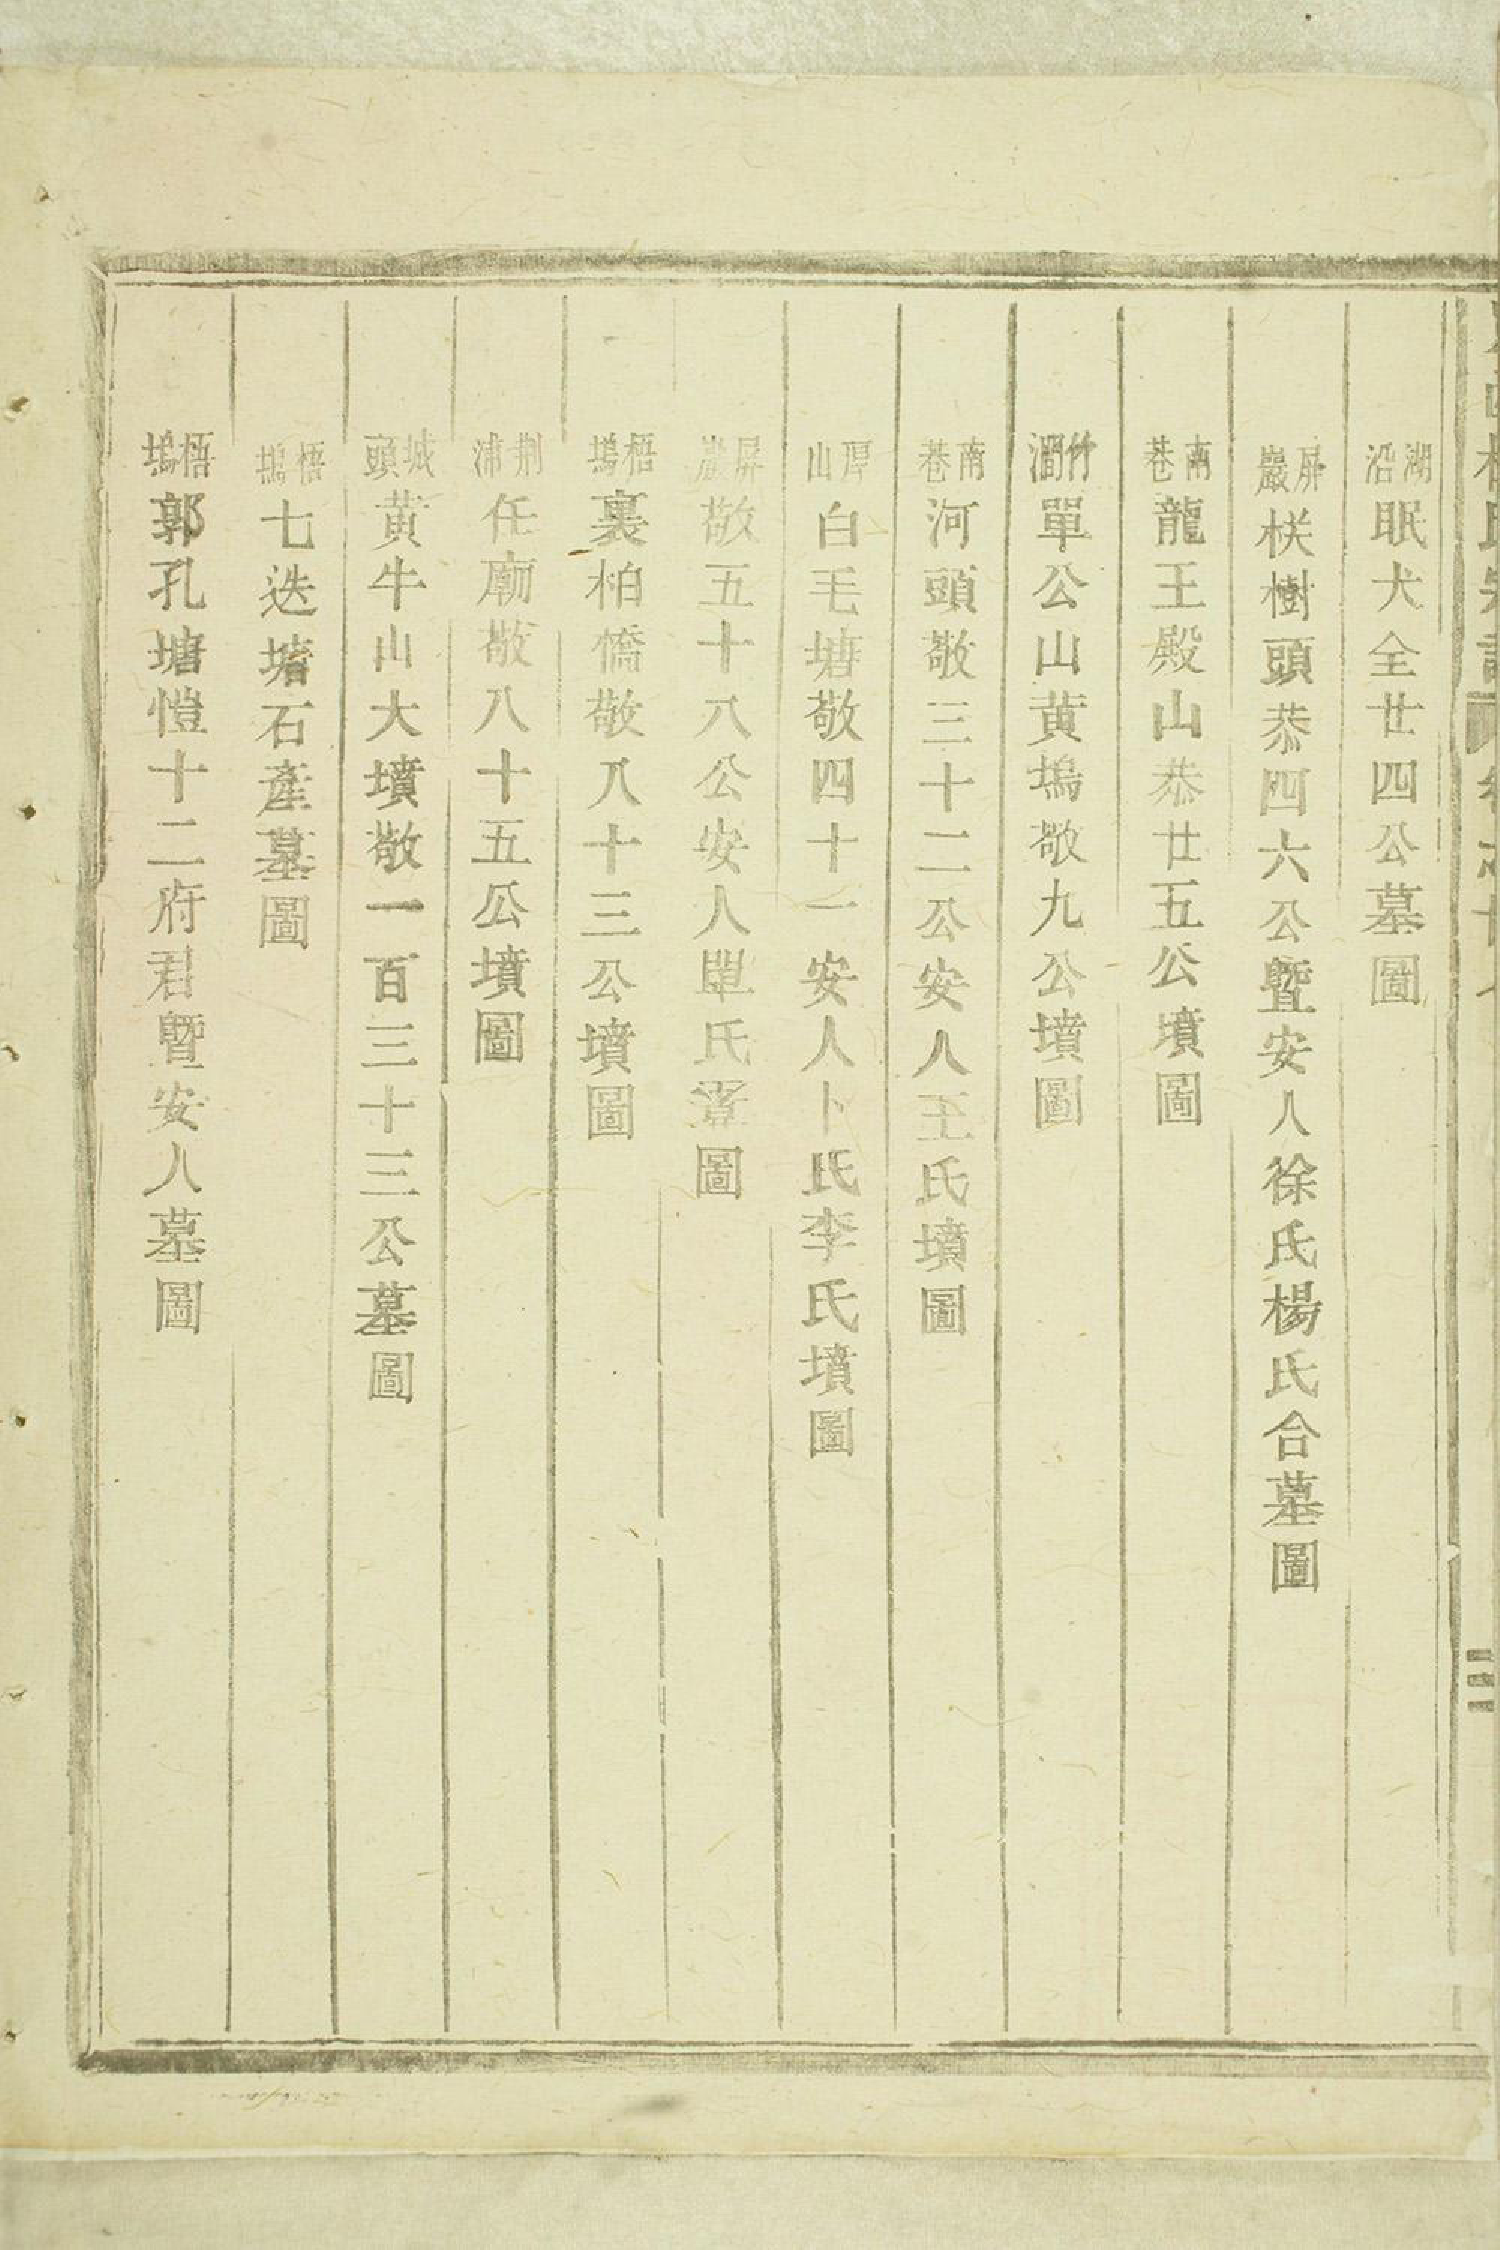 湖沿眠犬全廿四公墓圖
屏巖栚樹頭恭四六公曁安人徐氏楊氏合墓圖
南巷龍王殿山恭廿五公墳圖
竹澗單公山黃塢敬九公墳圖
南巷河頭敬三十二公安人王氏墳圖
山白毛塘敬四十一安人卜氏李氏墳圖
屏巖敬五十八公安人單氏墓圖
梧塢裏柏憍敬八十三公墳圖
荆浦任廟敬八十五公墳圖
城頭黃牛山大墳敬一百三十三公墓圖
梧塢七迭塘石產墓圖
梧塢郭孔塘愷十二府君曁安人墓圖